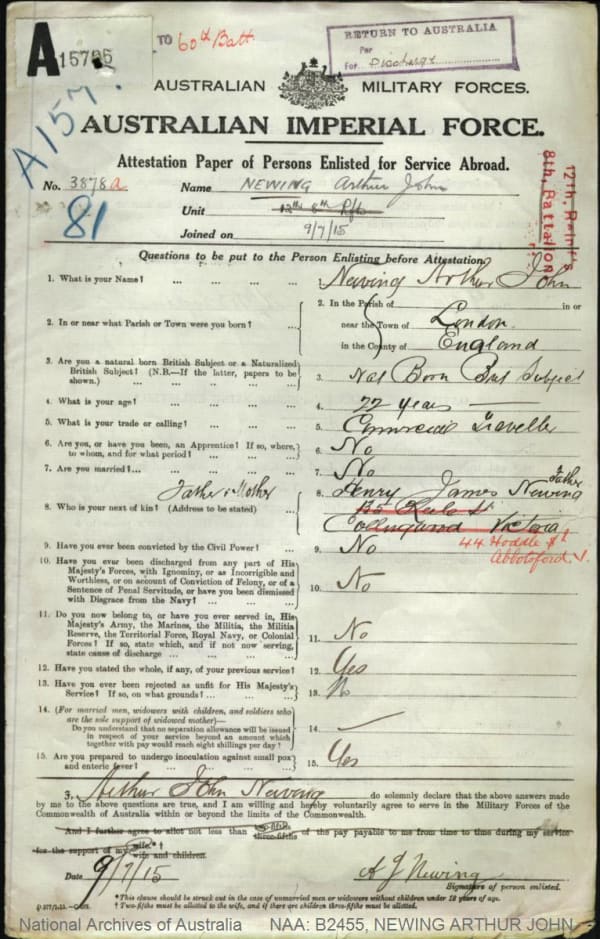 A
15795
TO 60th Batt.
RETURN TO AUSTRALIA
Per
For Discharge
A157
AUSTRALIAN MILITARY FORCES.
AUSTRALIAN IMPERIAL FORCE.
Attestation Paper of Persons Enlisted for Service Abroad.
No. 3878A Name NEWING Arthur John
81
Unit 12th 8th Rfts
Joined on 9/7/15
8th, Battalion
Questions to be put to the Person Enlisting before Attestation.
1. What is your Name? ... ... ... 1. Newing Arthur John
2. In or near what Parish or Town were you born? ... 2. In the Parish of in or
near the Town of London
in the County of England
3. Are you a natural born British Subject or a Naturalized
British Subject? (N.B.—If the latter, papers to be
shown.) ... ... ... ... 3. Nat Born Brit Subject
4. What is your age? ... ... ... 4. 22 years
5. What is your trade or calling? ... ... 5. Commercial Traveller
6. Are you, or have you been, an Apprentice? If so, where,
to whom, and for what period? ... ... 6. No
7. Are you married? ... ... ... 7. No
8. Who is your next of kin? (Address to be stated) ... Father & Mother 8. Henry James Newing Father
Collingwood Victoria
44 Hoddle St
Abbotsford V.
9. Have you ever been convicted by the Civil Power? ... 9. No
10. Have you ever been discharged from any part of His
Majesty's Forces, with Ignominy, or as Incorrigible and
Worthless, or on account of Conviction of Felony, or of a
Sentence of Penal Servitude, or have you been dismissed
with Disgrace from the Navy? ... ... 10. No
11. Do you now belong to, or have you ever served in, His
Majesty's Army, the Marines, the Militia, the Militia
Reserve, the Territorial Force, Royal Navy, or Colonial
Forces? If so, state which, and if not now serving,
state cause of discharge ... ... ... 11. No
12. Have you stated the whole, if any, of your previous service? 12. Yes
13. Have you ever been rejected as unfit for His Majesty's
Service? If so, on what grounds? ... ... 13. No
14. (For married men, widowers with children, and soldiers who
are the sole support of widowed mother)—
Do you understand that no separation allowance will be issued
in respect of your service beyond an amount which
together with pay would reach eight shillings per day? 14. —
15. Are you prepared to undergo inoculation against small pox
and enteric fever? ... ... ... 15. Yes
I, Arthur John Newing do solemnly declare that the above answers made
by me to the above questions are true, and I am willing and hereby voluntarily agree to serve in the Military Forces of the
Commonwealth of Australia within or beyond the limits of the Commonwealth.
And I further agree to allot not less than two-fifths three-fifths of the pay payable to me from time to time during my service
for the support of my wife.*†
wife and children.
Date 9/7/15 A J Newing
Signature of person enlisted.
*This clause should be struck out in the case of unmarried men or widowers without children under 18 years of age.
† Two-fifths must be allotted to the wife, and if there are children three-fifths must be allotted.
National Archives of Australia NAA: B2455, NEWING ARTHUR JOHN